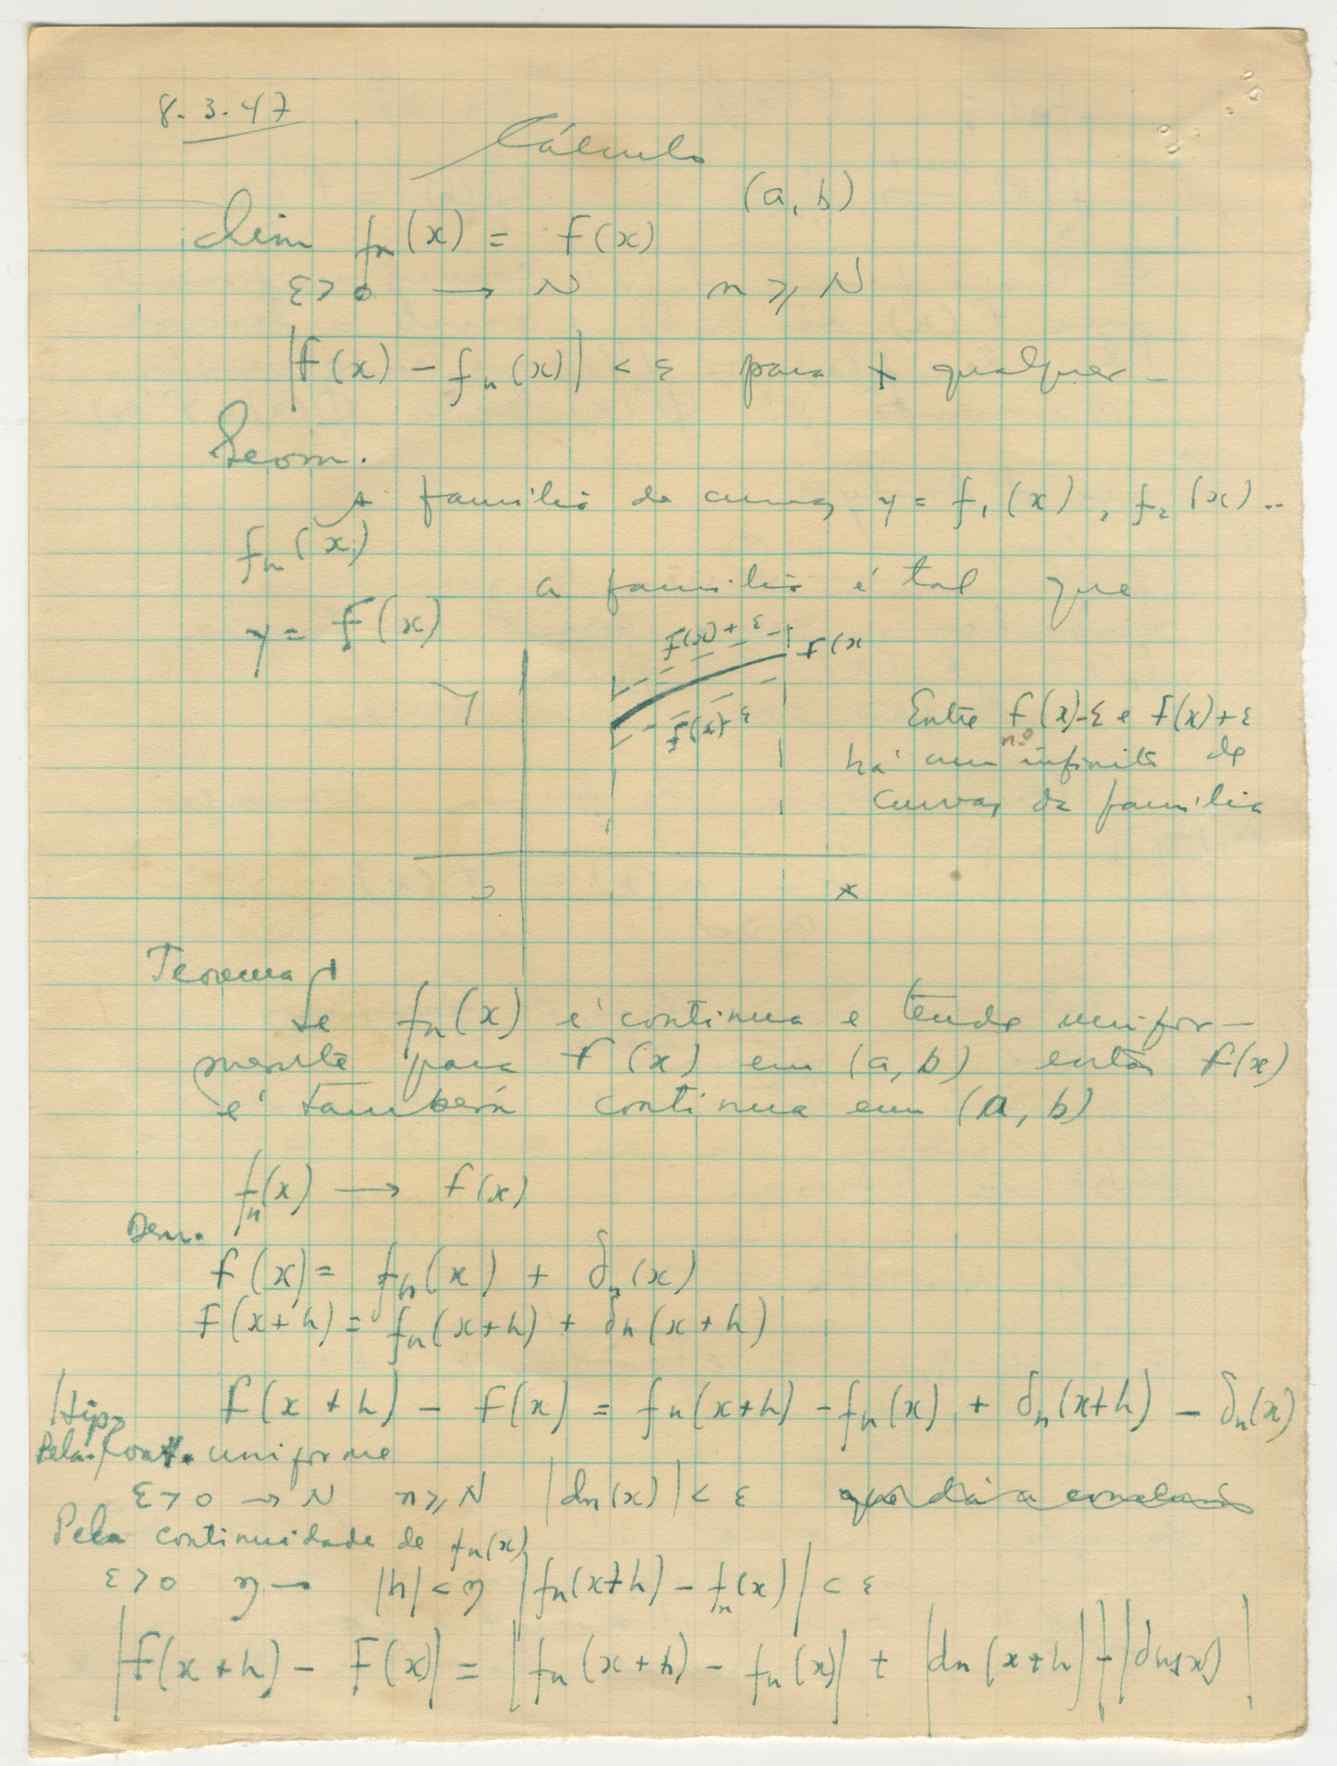 8.3.47
Cálculo
(a, b)
lim fn(x) = F(x)
ε>0 → N   n ⩾ N
|F(x) - fn(x)| < ε para x qualquer
Geom.
A familia de curvas y = f1(x), f2(x)..
fn(x)
a familia é tal que
y = F(x)
F(x)+ε
F(x
y
F(x)-ε
Entre F(x)-ε e F(x)+ε
há um nº infinito de
curvas da familia
o
x
Teorema
Se fn(x) é continua e tende unifor-
mente para F(x) em (a, b) então F(x)
é também continua em (a, b)
fn(x) → F(x)
Dem.
F(x) = fn(x) + δn(x)
F(x+h) = fn(x+h) + δn(x+h)
F(x+h) - F(x) = fn(x+h) - fn(x) + δn(x+h) - δn(x)
Hip.
Pela conv. uniforme
ε>0 → N   n⩾N   |dn(x)| < ε
Pela continuidade de fn(x)
ε>0   η →   |h| < η   |fn(x+h) - fn(x)| < ε
|F(x+h) - F(x)| = |fn(x+h) - fn(x)| + |dn(x+h)| + |dn(x)|